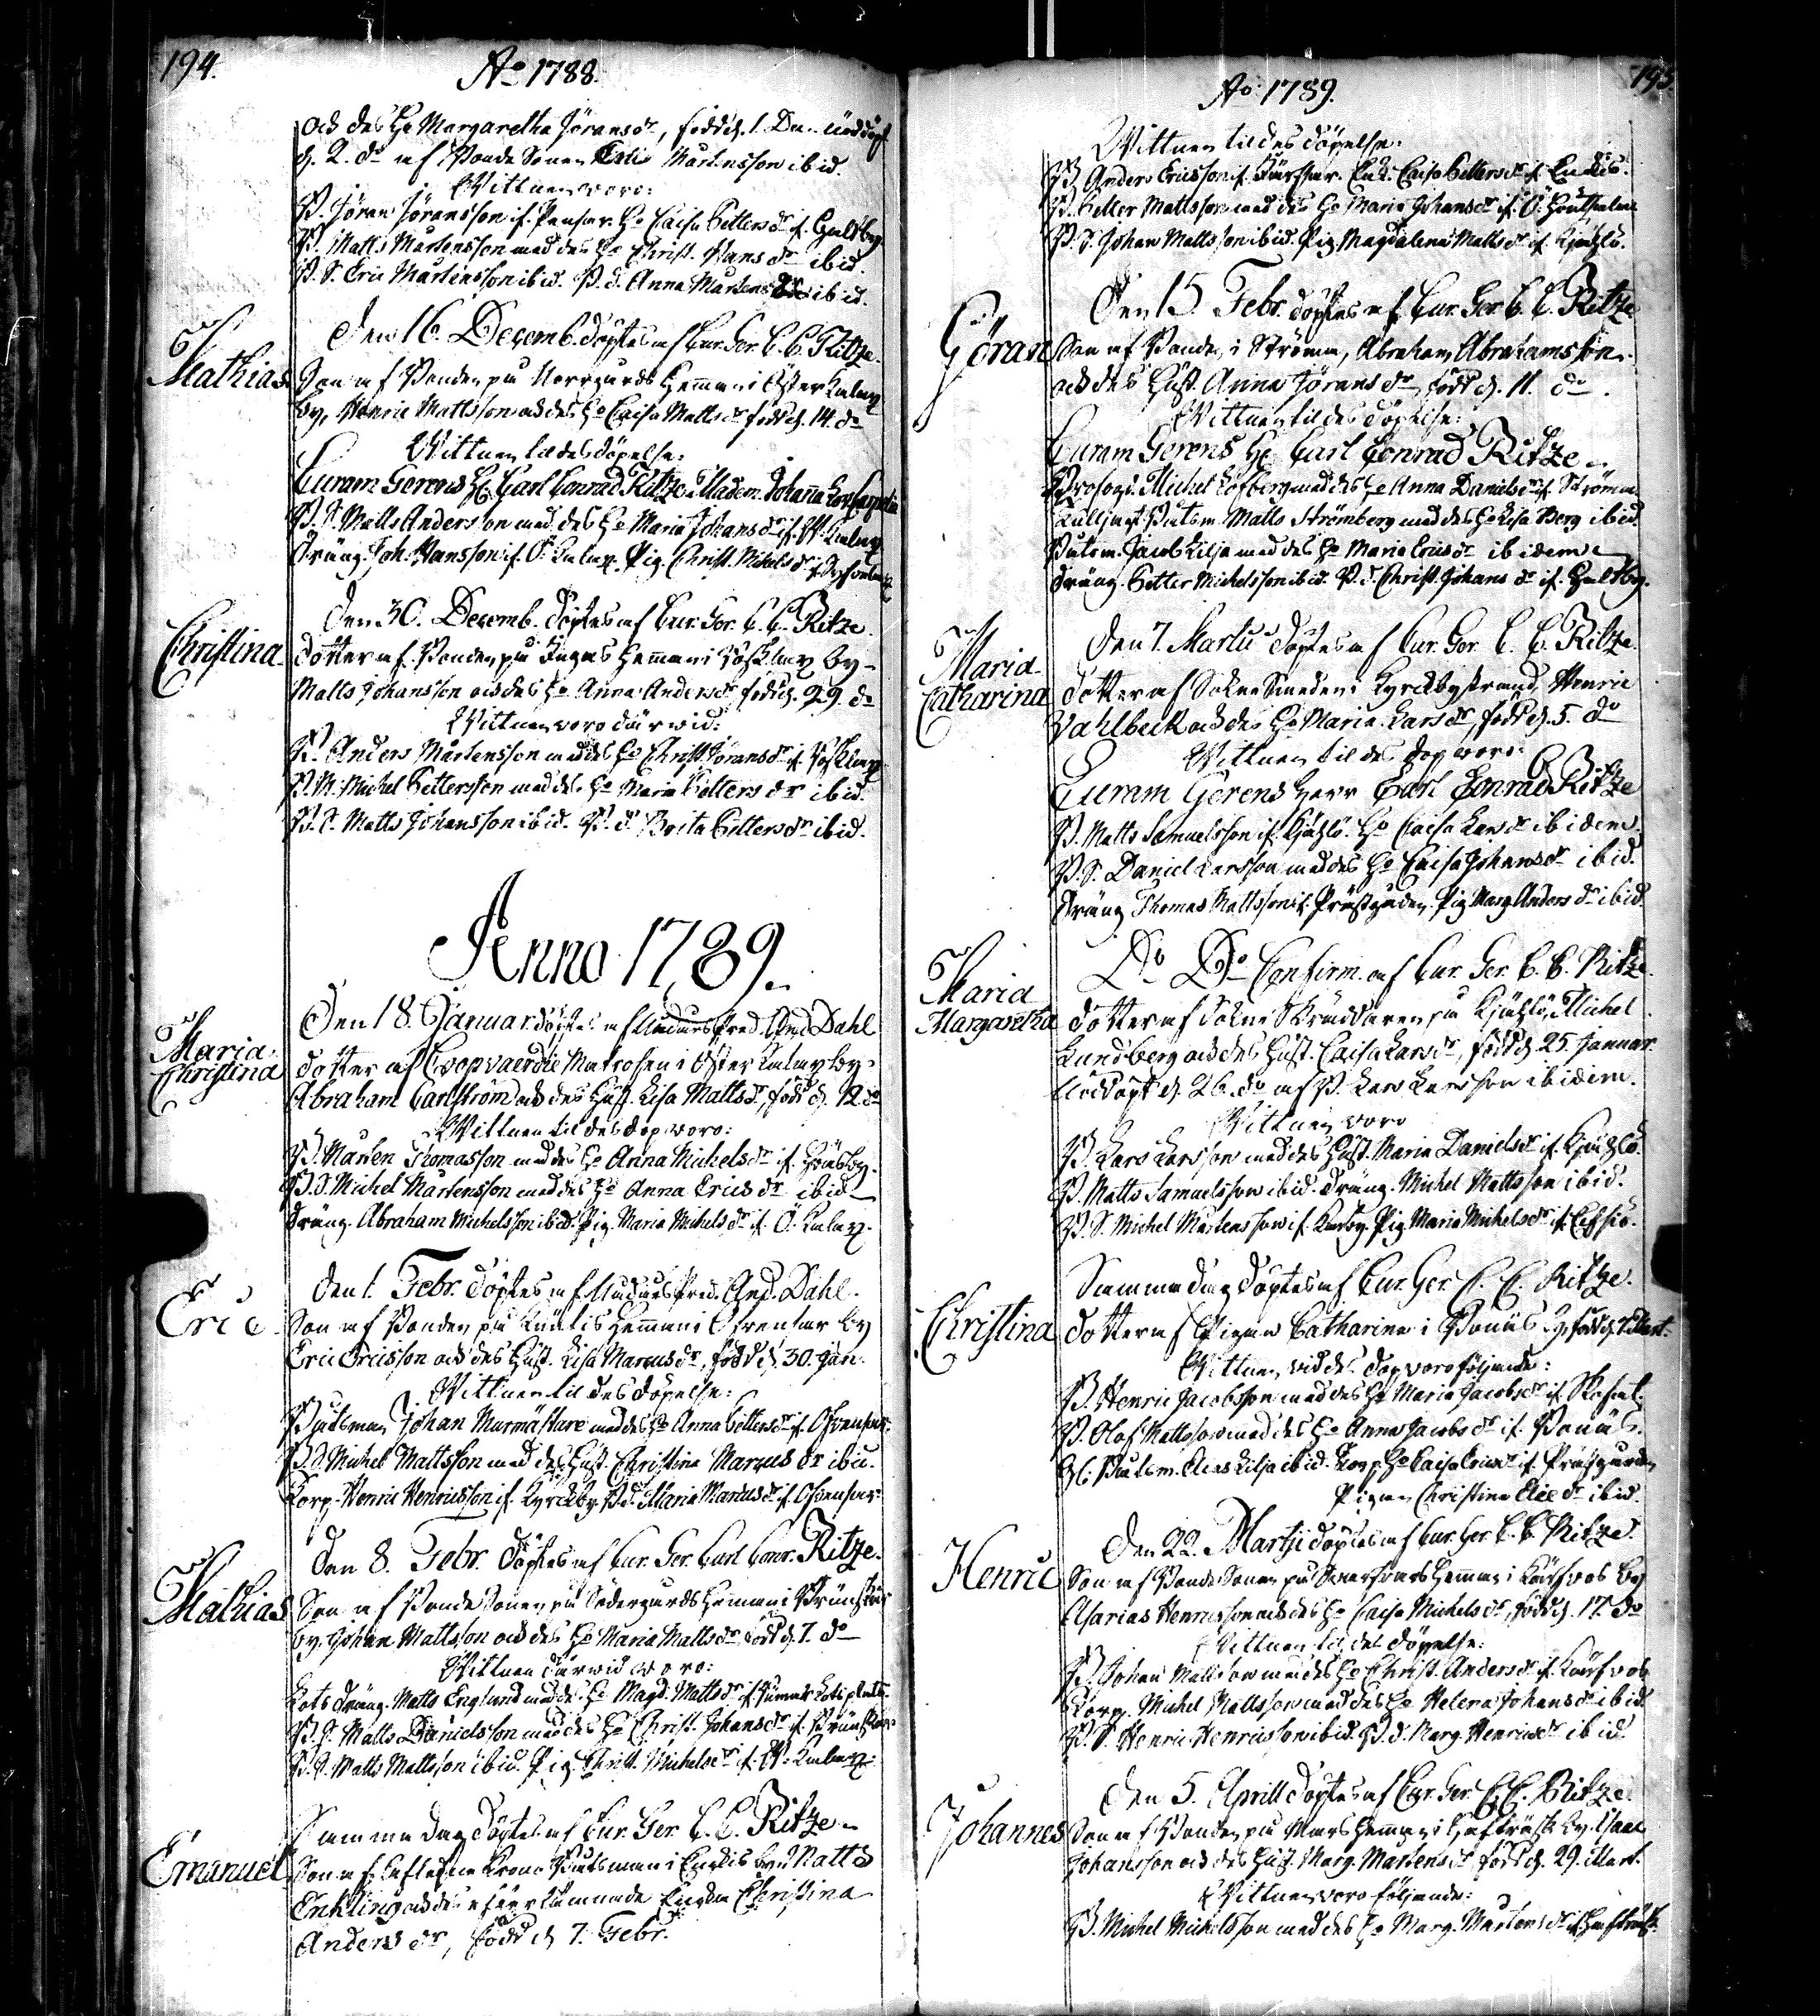 194.
Ao 1788.
och des Ho Margaretha Jöransdr, född d. 1. Dec. nöddöpt
d. 2. do af Bonde Sonen Eric Mårtensson ibid.
Wittnen woro:
B. Jöran Jöransson if. Pensar. Ho Caisa Pettersdr if. Guldby.
B. Matts Mårtensson med des Ho Christ. Hansdr ibid.
B. S. Eric Mårtensson ibid. B. d. Anna Mårtensdr ibid.
Mathias
Den 16. Decemb. döptes af Cur. Ger. C. C. Ritze.
Son af Bonden på Norrgårds Hemman i Öster Kalmar
by, Henric Mattsson och des Ho Caisa Mattsdr född d. 14. do
Wittnen til des döpelse:
Curam Gerens H. Carl Conrad Ritze. Madem. Johanna
B. S. Matts Andersson med des Ho Maria Johansdr if. W. Kalmar
Dräng. Joh. Hansson if. Ö. Kalmar. Pig. Christ. Michelsdr if.
Christina
Den 30. Decemb. döptes af Cur. Ger. C. C. Ritze.
dotter af Bonden på Hemman i by
Matts Johansson och des Ho Anna Andersdr född d. 29. do
Wittnen woro därwid:
B. Anders Mårtensson med des Ho Christ. Jöransdr if.
Michel Pettersson med des Ho Maria Pettersdr ibid.
B. S. Matts Johansson ibid. B. d. Brita Pettersdr ibid.
Anno 1789.
Maria
Christina
Den 18. Januar. döptes af And. Dahl
dotter af Coopvaerdie Matrosen i Öster Kalmar by
Abraham Carlström och des Hust. Lisa Mattsdr, född d. 12. do
Wittnen til des dop woro:
B. Mårten Thomasson med des Ho Anna Michelsdr if.
B. S. Michel Mårtensson med des Ho Anna Ericsdr ibid
Dräng. Abraham Michelsson ibid. Pig. Maria Michelsdr if. Ö. Kalmar.
Eric
Den 1. Febr. döptes af And. Dahl.
Son af Bonden på Hemman i Ofvensar by
Eric Ericsson och des Hust. Lisa Marcusdr, född d. 30. Jan.
Wittnen til des döpelse:
Båtsman Johan Murmästare med des Ho Anna Pettersdr if. Ofvensar.
B. S. Michel Mattsson med des Hust. Christina Marcusdr ibid.
Korp. Henric Henricsson if. Kyrckby. B. d. Maria Marcusdr if. Ofvensar
Mathias
Den 8. Febr. döptes af Cur. Ger. Carl Conr. Ritze.
Son af Bonde Sonen på Södergårds Hemman i
by. Johan Mattsson och des Ho Maria Mattsdr, född d. 7. do
Wittnen därwid woro:
Lots Dräng. Matts Englund med des Ho Magd. Mattsdr if.
B. S. Matts Danielsson med des Ho Christ. Johansdr if.
B. S. Matts Mattsson ibid. Pig. Christ. Michelsdr if. W. Kalmar.
Emanuel
Samma dag döptes af Cur. Ger. C. C. Ritze.
Son af Aflefne Krono Båtsman i Enklis by, Matts
Enkling och des efterlämnade Enka Christina
Andersdr, född d. 7. Febr.
195.
Ao 1789.
Wittnen til des döpelse:
B. Anders Ericsson if. Enk. Caisa Pettersdr if. Enklis.
B. Petter Mattsson med des Ho Maria Johansdr if. Ö.
B. S. Johan Mattsson ibid. Pig. Magdalena Mattsdr if.
Göran
Den 15. Febr. döptes af Cur. Ger. C. C. Ritze.
Son af Bonden i Strömma, Abraham Abrahamsson
och des Hust. Anna Jöransdr, född d. 11. do.
Wittnen til des döpelse:
Curam Gerens H. Carl Conrad Ritze.
Michel Löfberg med des Ho Anna Danielsdr if. Strömma
Båtsm. Matts Strömberg med des Ho Lisa Berg ibid.
Båtsm. Jacob Lilja med des Ho Maria Ericsdr ibidem
Dräng. Petter Michelsson ibid. B. d. Christ. Johansdr if. Guldby.
Maria
Catharina
Den 7. Martii döptes af Cur. Ger. C. C. Ritze.
dotter af Sokne Smeden i Kyrckbystrand, Henric
Vahlbeck och des Ho Maria Larsdr, född d. 5. do
Wittnen til des dop woro:
Curam Gerens Herr Carl Conrad Ritze
B. Matts Samuelsson if. Ho Caisa Larsdr ibidem
B. S. Daniel Larsson med des Ho Caisa Johansdr ibid.
Dräng Thomas Mattsson if. Prästgården. Pig. Marg. Andersdr ibid.
Maria
Margaretha
Do Do Confirm. af Cur. Ger. C. C. Ritze.
dotter af Sokne Skräddaren på Michel
Lundberg och des Hust. Caisa Larsdr, född d. 25. Januar.
Nöddöpt d. 26. do af B. Lars Larsson ibidem.
Wittnen woro
B. Lars Larsson med des Hust. Maria Danielsdr if.
B. Matts Samuelsson ibid. Dräng. Michel Mattsson ibid.
B. S. Michel Mårtensson if. Pig. Maria Michelsdr if.
Christina
Samma dag döptes af Cur. Ger. C. C. Ritze.
dotter af Pigan Catharina i född d. Mart.
Wittnen vid des dop woro följande:
B. Henric Jacobsson med des Ho Maria Jacobsdr if.
B. Olof Mattsson med des Ho Anna Jacobsdr if.
Båtsm. Elias Lilja ibid. Korp. Ho Caisa Ericsdr if. Prästgården
Pigan Christina Eliedr ibid.
Henric
Den 22. Martii döptes af Cur. Ger. C. C. Ritze.
Son af Bonde Sonen på Hemman i by
Asarias Henricsson och des Ho Caisa Michelsdr, född d. 17. do
Wittnen til des döpelse:
B. Johan Mattsson med des Ho Christ. Andersdr if.
Korp. Michel Mattsson med des Ho Helena Johansdr ibid.
B. S. Henric Henricsson ibid. B. d. Marg. Henricsdr ibid.
Johannes
Den 5. Aprill döptes af Cur. Ger. C. C. Ritze.
Son af Bonden på Mars Hemman i by. Isaac
Johansson och des Hust. Marg. Mårtensdr, född d. 29. Mart.
Wittnen woro följande:
B. Michel Michelsson med des Ho Marg. Mårtensdr if.